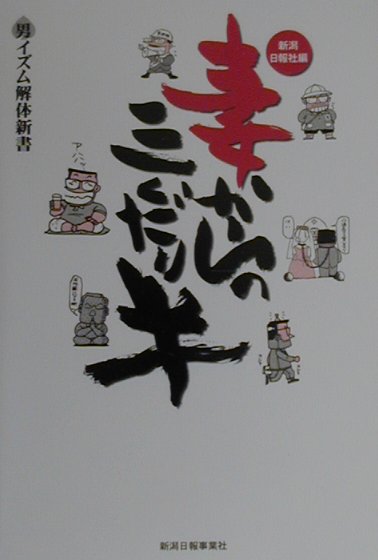 妻からの
三くだり半
新潟
日報社編
男イズム解体新書
新潟日報事業社